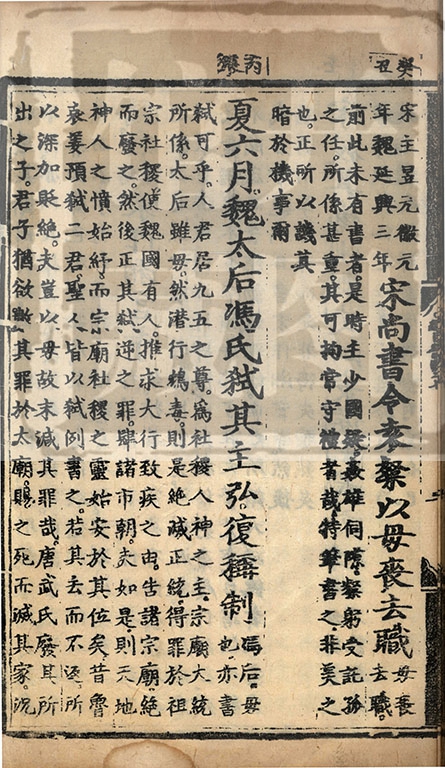 癸丑
丙辰
宋主昱元徽元
年魏延興三年
宋尚書令袁粲以母喪去職
母喪
去職。
前此未有書者。是時主少國疑。姦雄伺隙。粲躬受託孤
之任。所係甚重。其可拘常守禮者哉。特筆書之。非美之
也。正所以譏其
暗於機事爾
夏六月。魏太后馮氏弑其主弘。復稱制
馮后。母
也。亦書
弑可乎。人君居九五之尊。為社稷人神之主。宗廟大統
所係。太后雖母。然潛行鴆毒。則是絶滅正統。得罪於祖
宗社稷。使魏國有人。推求大行致疾之由。告諸宗廟。絶
而廢之。然後正其弑逆之罪。肆諸市朝。夫如是。則天地
神人之憤始紓。而宗廟社稷之靈始安於其位矣。昔魯
哀姜預弑二君。聖人皆以弑例書之。若其去而不返。所
以深加貶絶。夫豈以母故末減其罪哉。唐武氏廢其所
出之子。君子猶欲斷其罪於太廟。賜之死而滅其家。況